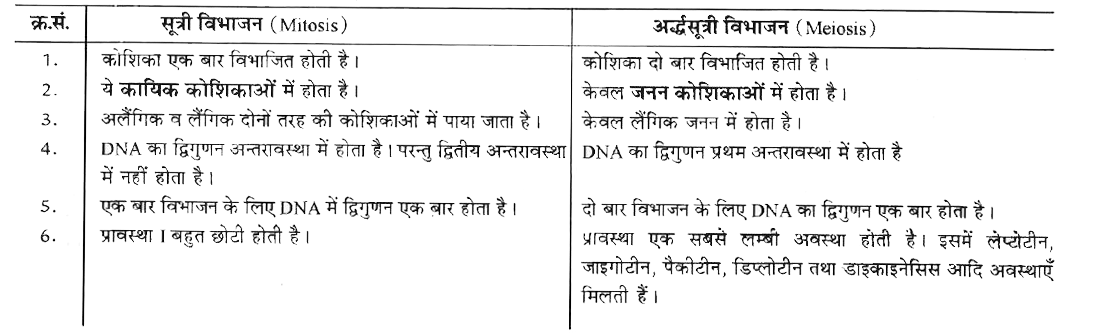 क्र.सं. सूत्री विभाजन (Mitosis) अर्द्धसूत्री विभाजन (Meiosis)
1. कोशिका एक बार विभाजित होती है। कोशिका दो बार विभाजित होती है।
2. ये कायिक कोशिकाओं में होता है। केवल जनन कोशिकाओं में होता है।
3. अलैंगिक व लैंगिक दोनों तरह की कोशिकाओं में पाया जाता है। केवल लैंगिक जनन में होता है।
4. DNA का द्विगुणन अन्तरावस्था में होता है। परन्तु द्वितीय अन्तरावस्था DNA का द्विगुणन प्रथम अन्तरावस्था में होता है
में नहीं होता है।
5. एक बार विभाजन के लिए DNA में द्विगुणन एक बार होता है। दो बार विभाजन के लिए DNA का द्विगुणन एक बार होता है।
6. प्रावस्था I बहुत छोटी होती है। प्रावस्था एक सबसे लम्बी अवस्था होती है। इसमें लेप्टोटीन,
जाइगोटीन, पैकीटीन, डिप्लोटीन तथा डाइकाइनेसिस आदि अवस्थाएँ
मिलती हैं।